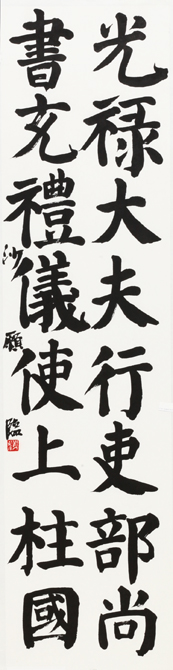 光祿大夫行吏部尚
書充禮儀使上柱國
沙頭臨